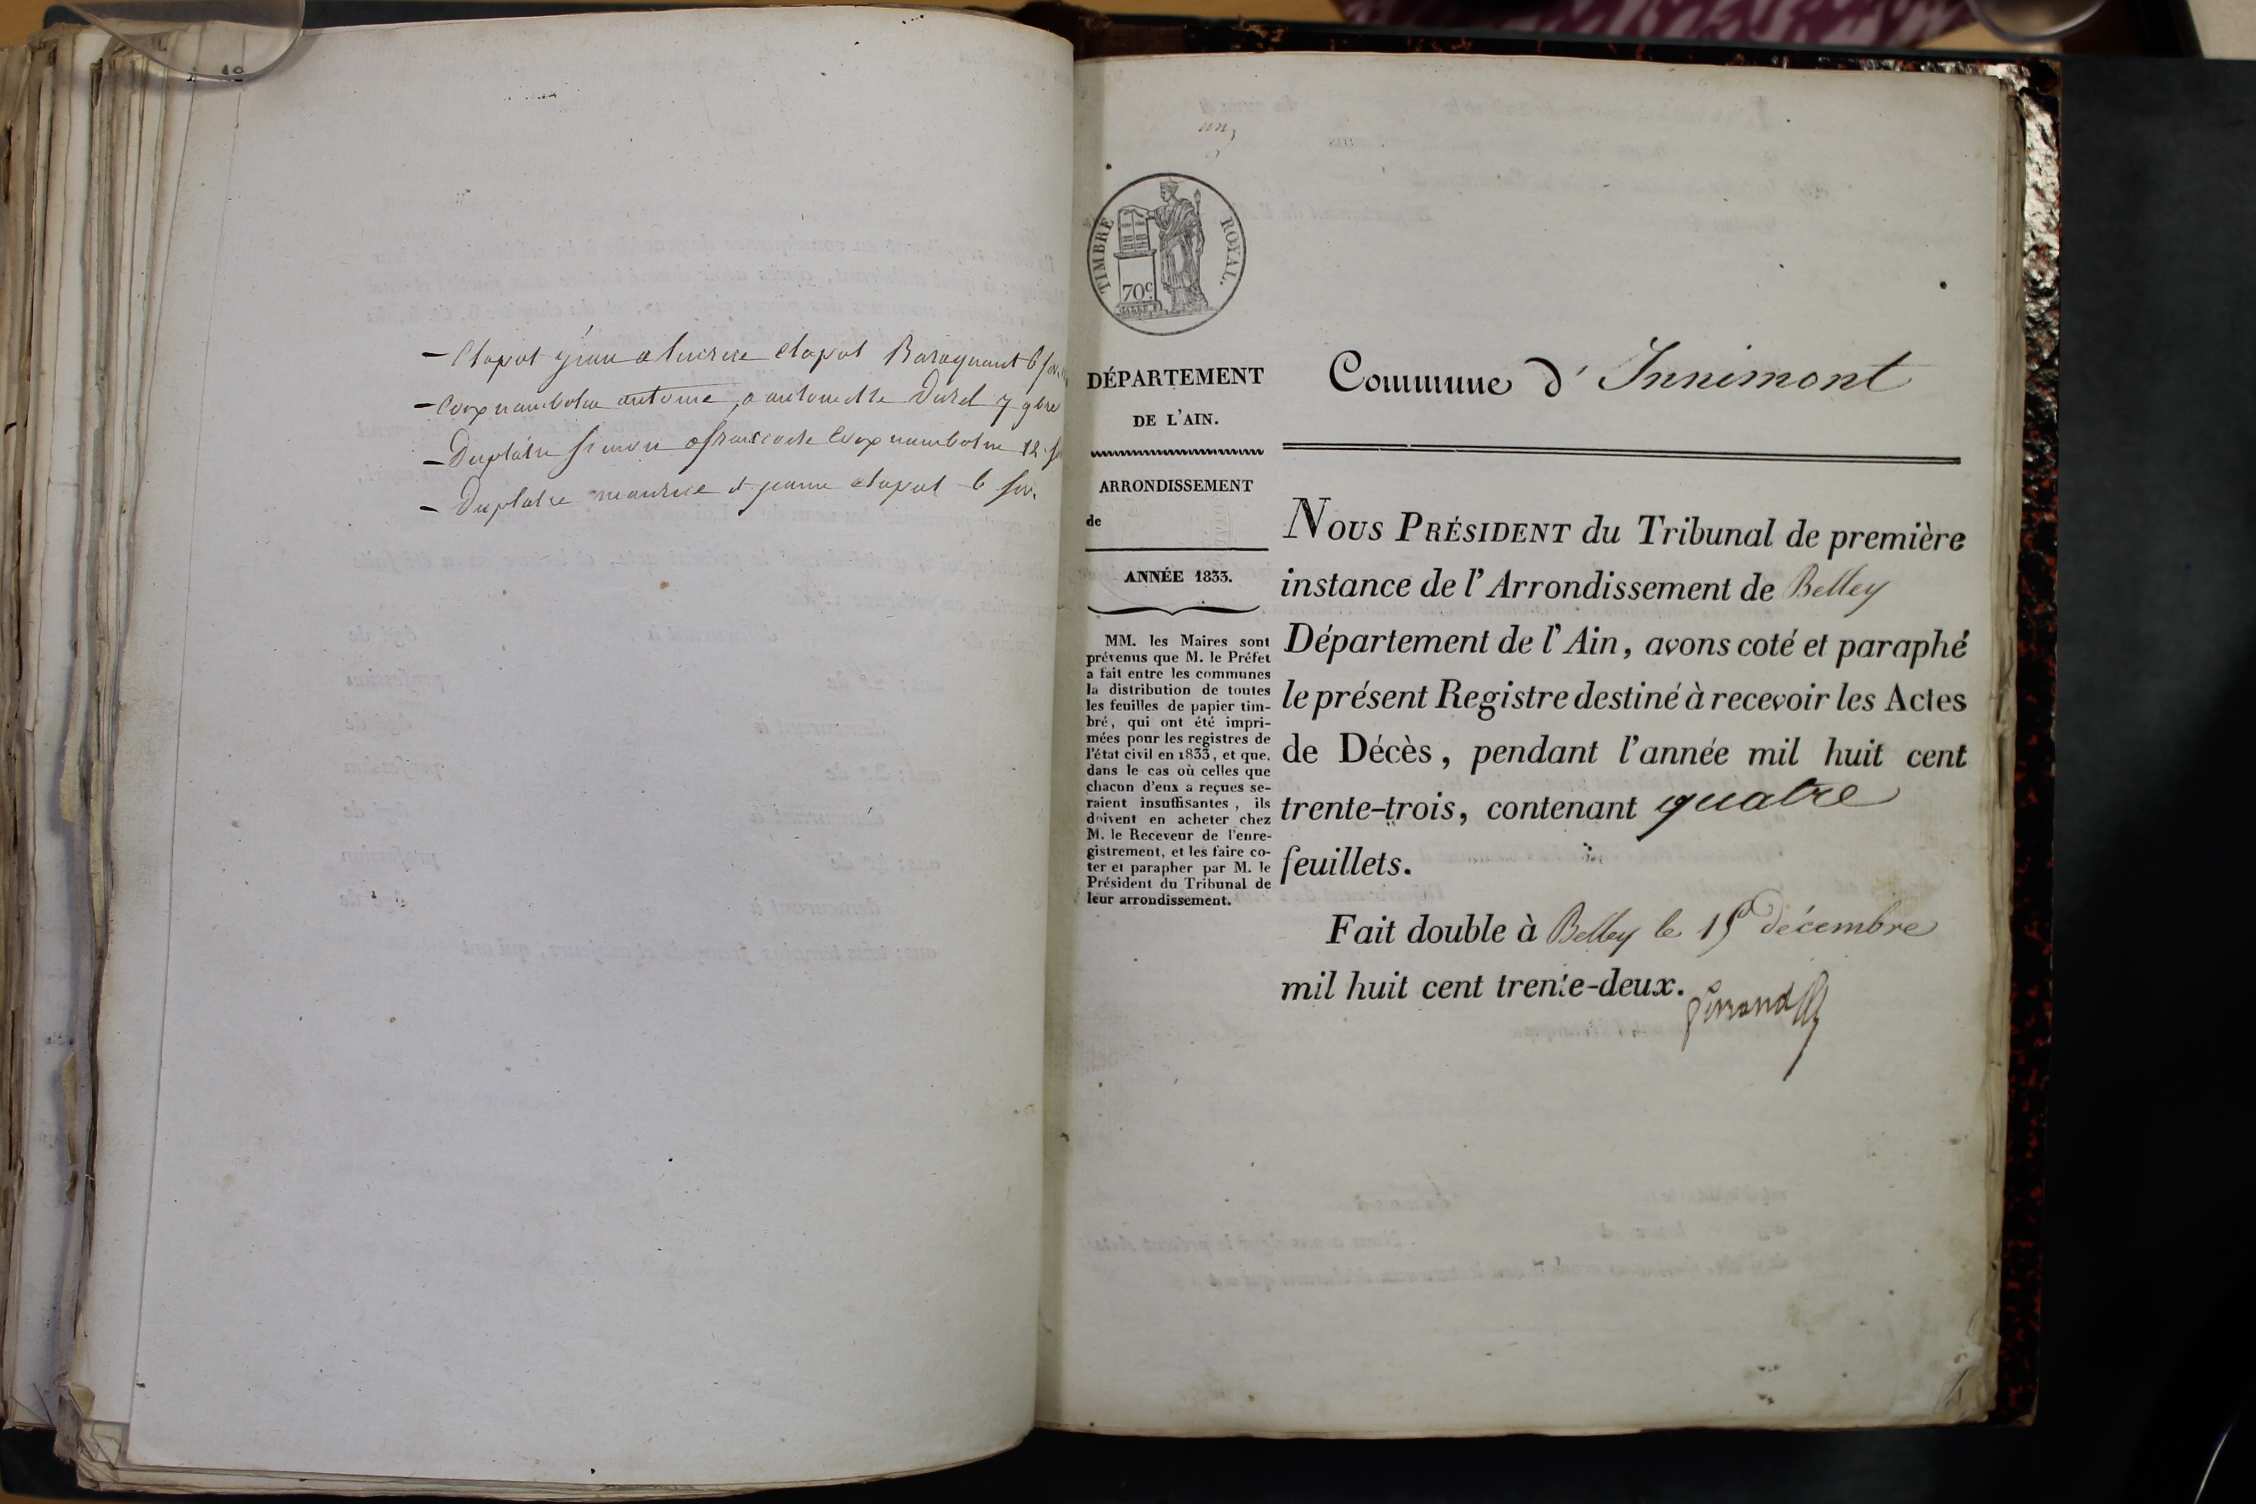 – Clapot jean a lucrece clapot Baraquant 6 fev.
– Coxnambotin antoine, a antoinette Duret 7 9bre
– Duplâtre simon a francoise Coxnambotin 12
– Duplatre maurice et jeanne clapot 6 fev.
un,
TIMBRE ROYAL.
70c
DÉPARTEMENT
DE L'AIN.
ARRONDISSEMENT
de
ANNÉE 1833.
MM. les Maires sont
prévenus que M. le Préfet
a fait entre les communes
la distribution de toutes
les feuilles de papier tim-
bré, qui ont été impri-
mées pour les registres de
l'état civil en 1833, et que,
dans le cas où celles que
chacun d'eux a reçues se-
raient insuffisantes, ils
doivent en acheter chez
M. le Receveur de l'enre-
gistrement, et les faire co-
ter et parapher par M. le
Président du Tribunal de
leur arrondissement.
Commune d'Innimont
NOUS PRÉSIDENT du Tribunal de première
instance de l'Arrondissement de Belley
Département de l'Ain, avons coté et paraphé
le présent Registre destiné à recevoir les Actes
de Décès, pendant l'année mil huit cent
trente-trois, contenant quatre
feuillets.
Fait double à Belley le 15 décembre
mil huit cent trente-deux.